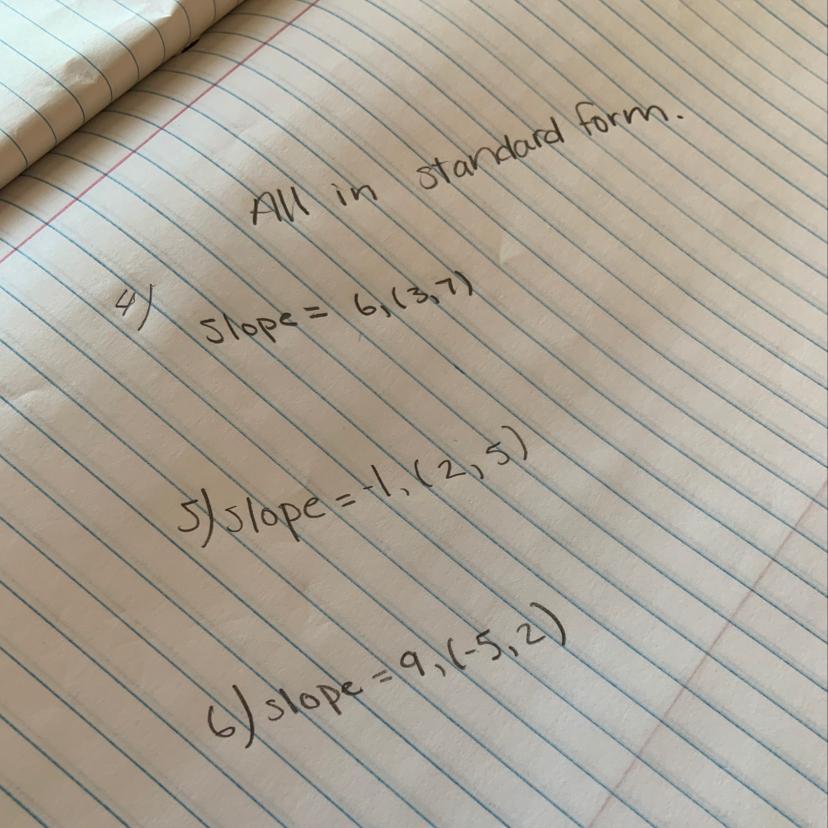 All in standard form.
4) slope = 6, (3,7)
5) slope = -1, (2,5)
6) slope = 9, (-5,2)